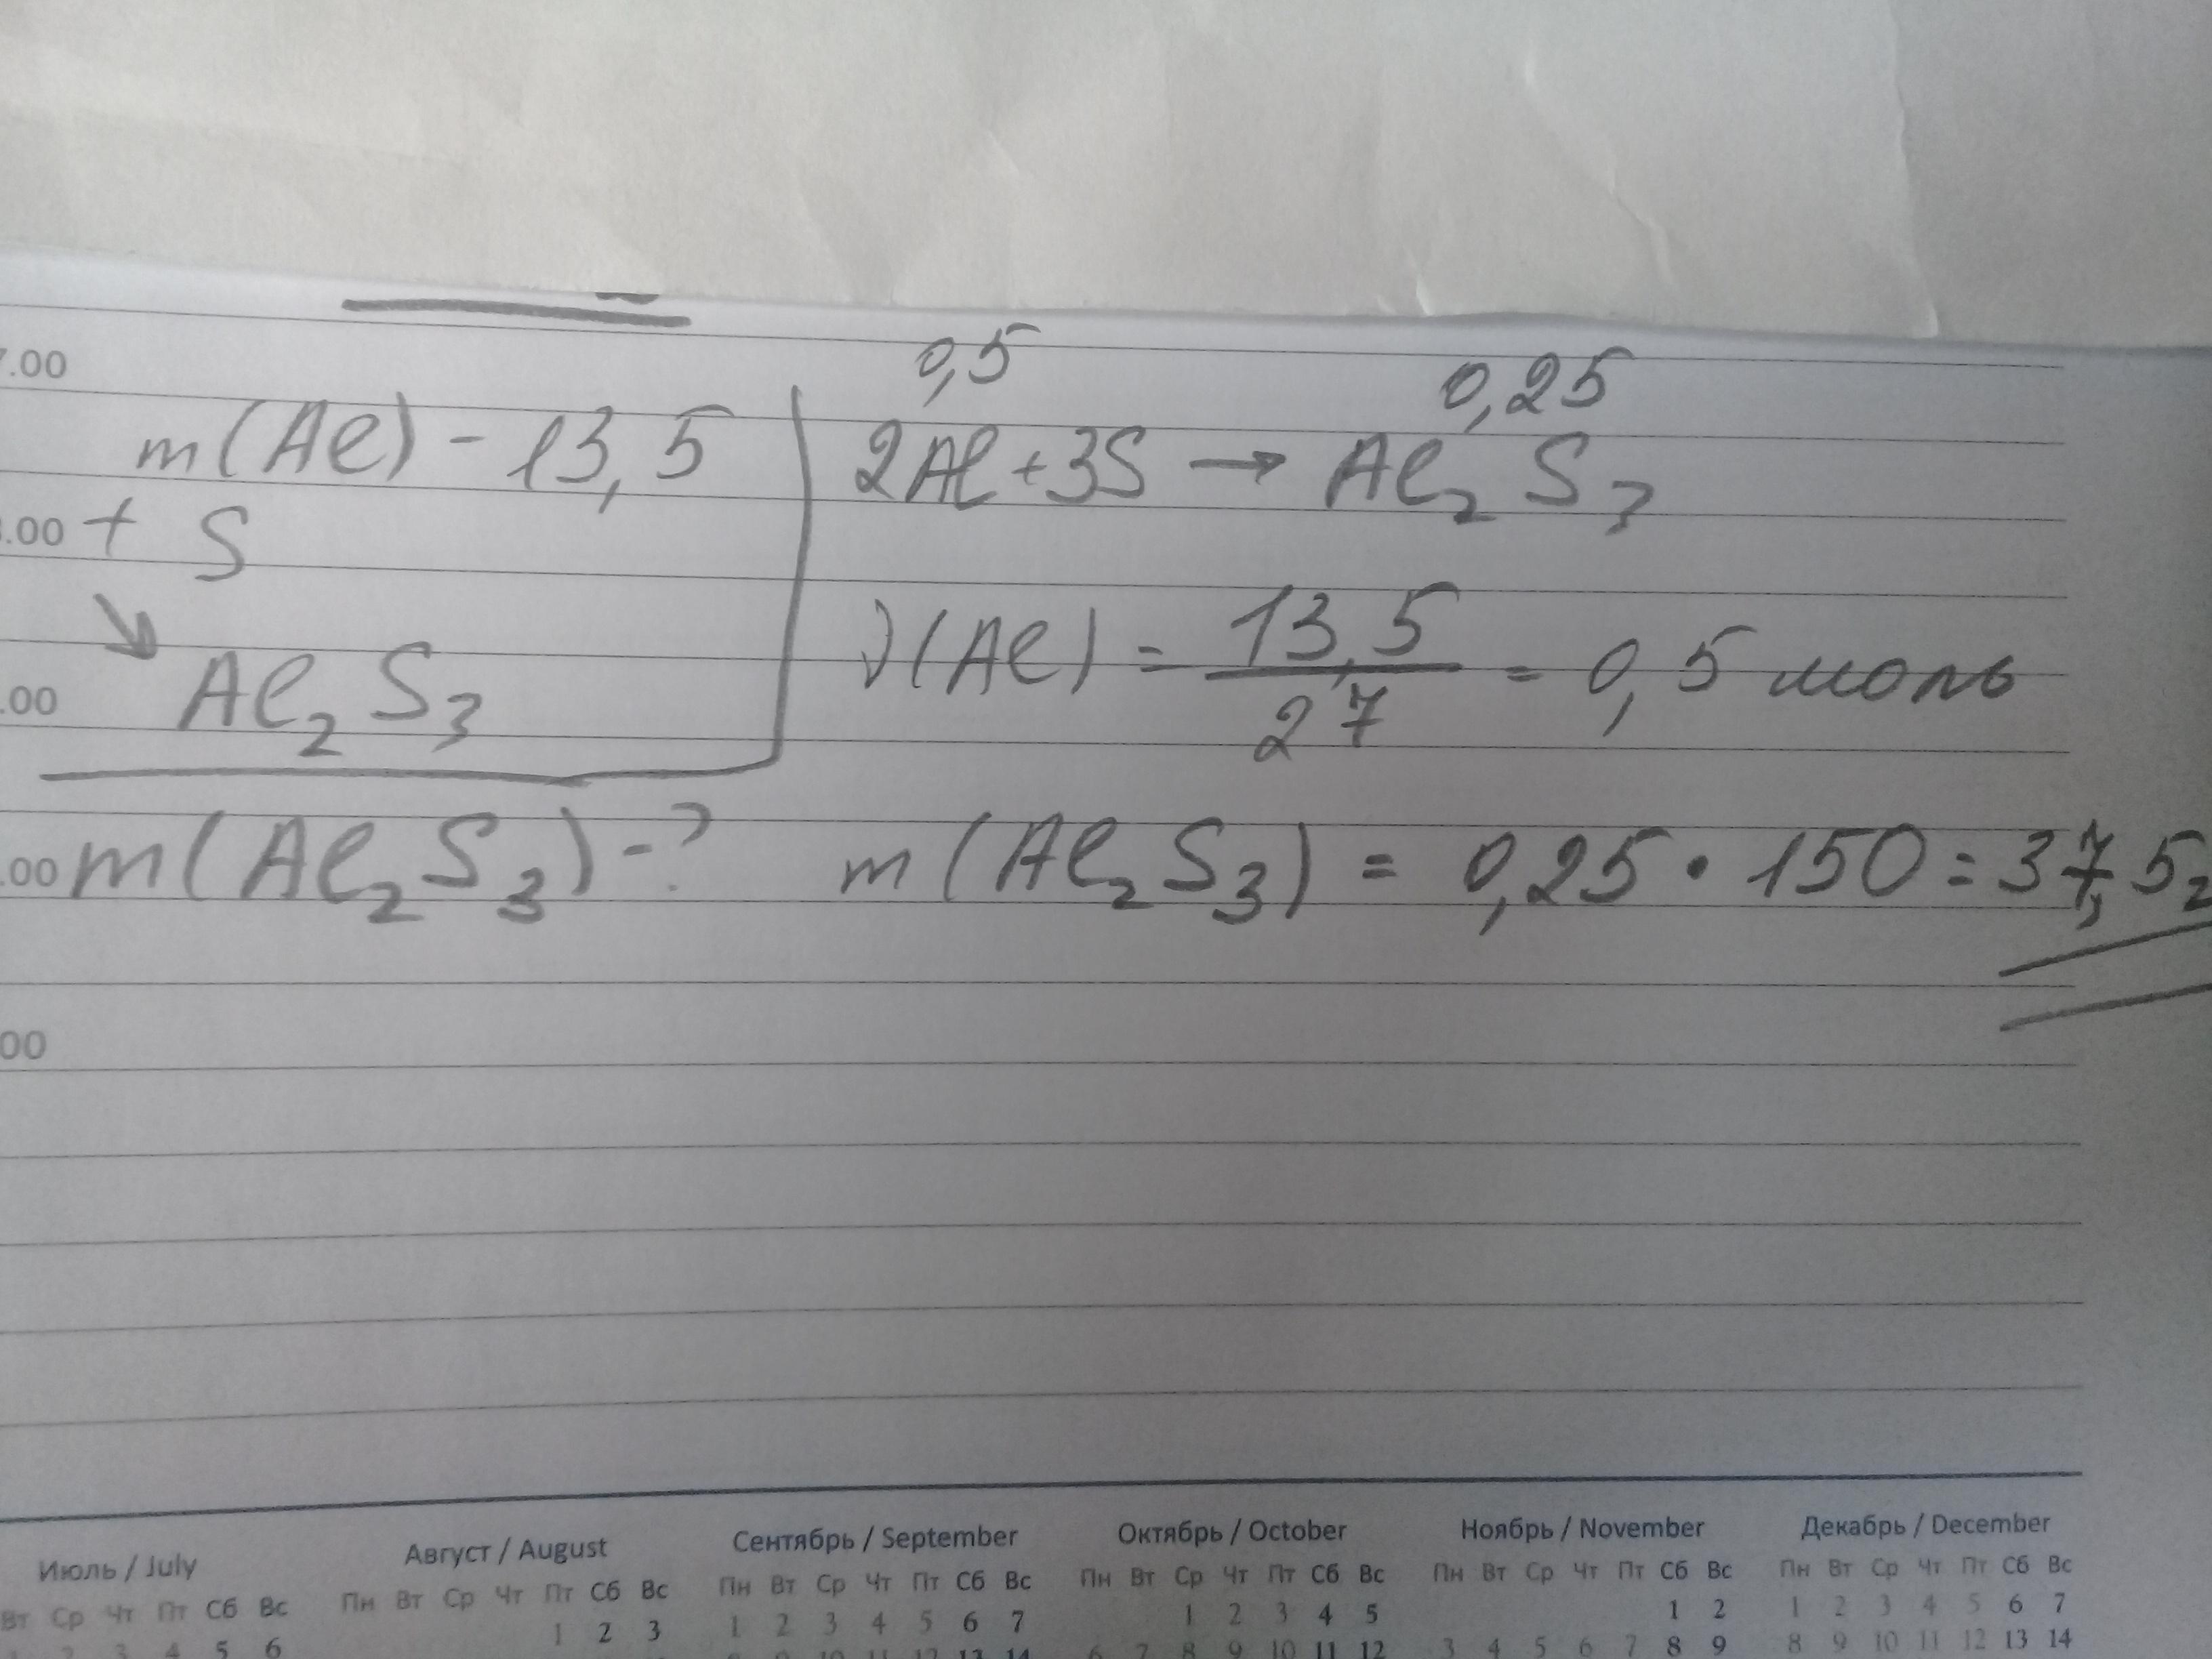 7.00
0,5 0,25
m(Al) - 13,5 2Al + 3S → Al₂S₃
.00 + S
↘
.00 Al₂S₃ ν(Al) = 13,5/27 = 0,5 моль
.00 m(Al₂S₃) - ? m(Al₂S₃) = 0,25 · 150 = 37,5г
00
Июль / July Август / August Сентябрь / September Октябрь / October Ноябрь / November Декабрь / December
Вт Ср Чт Пт Сб Вс Пн Вт Ср Чт Пт Сб Вс Пн Вт Ср Чт Пт Сб Вс Пн Вт Ср Чт Пт Сб Вс Пн Вт Ср Чт Пт Сб Вс Пн Вт Ср Чт Пт Сб Вс
1 2 3 4 5 6 1 2 3 1 2 3 4 5 6 7 1 2 3 4 5 1 2 1 2 3 4 5 6 7
8 9 10 11 12 13 14 6 7 8 9 10 11 12 3 4 5 6 7 8 9 8 9 10 11 12 13 14